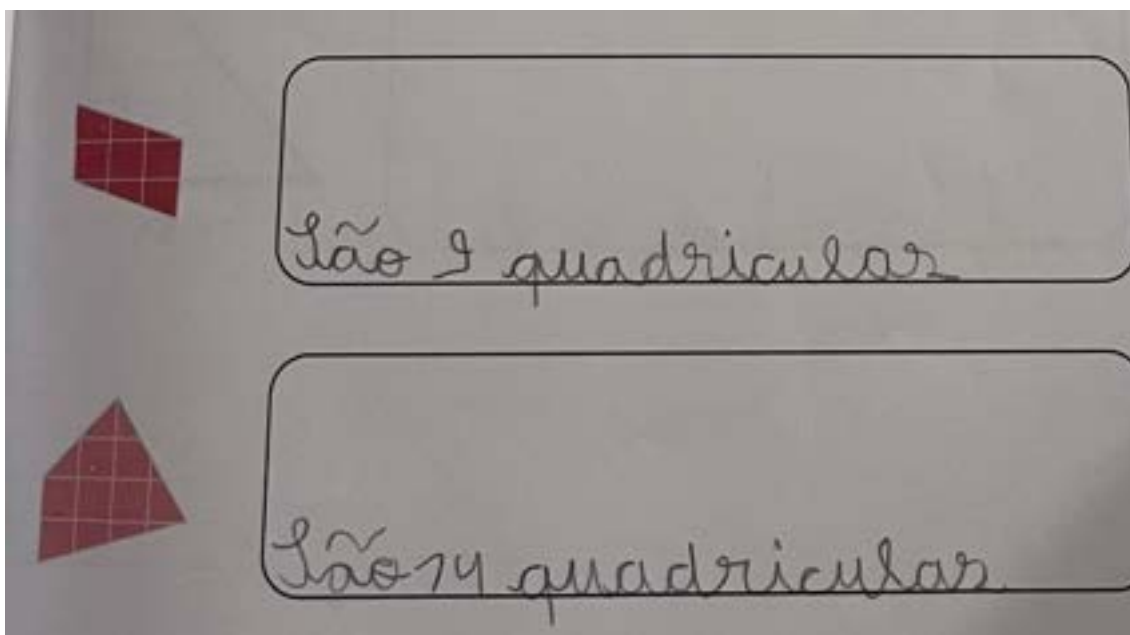 São 9 quadriculas
São 14 quadriculas